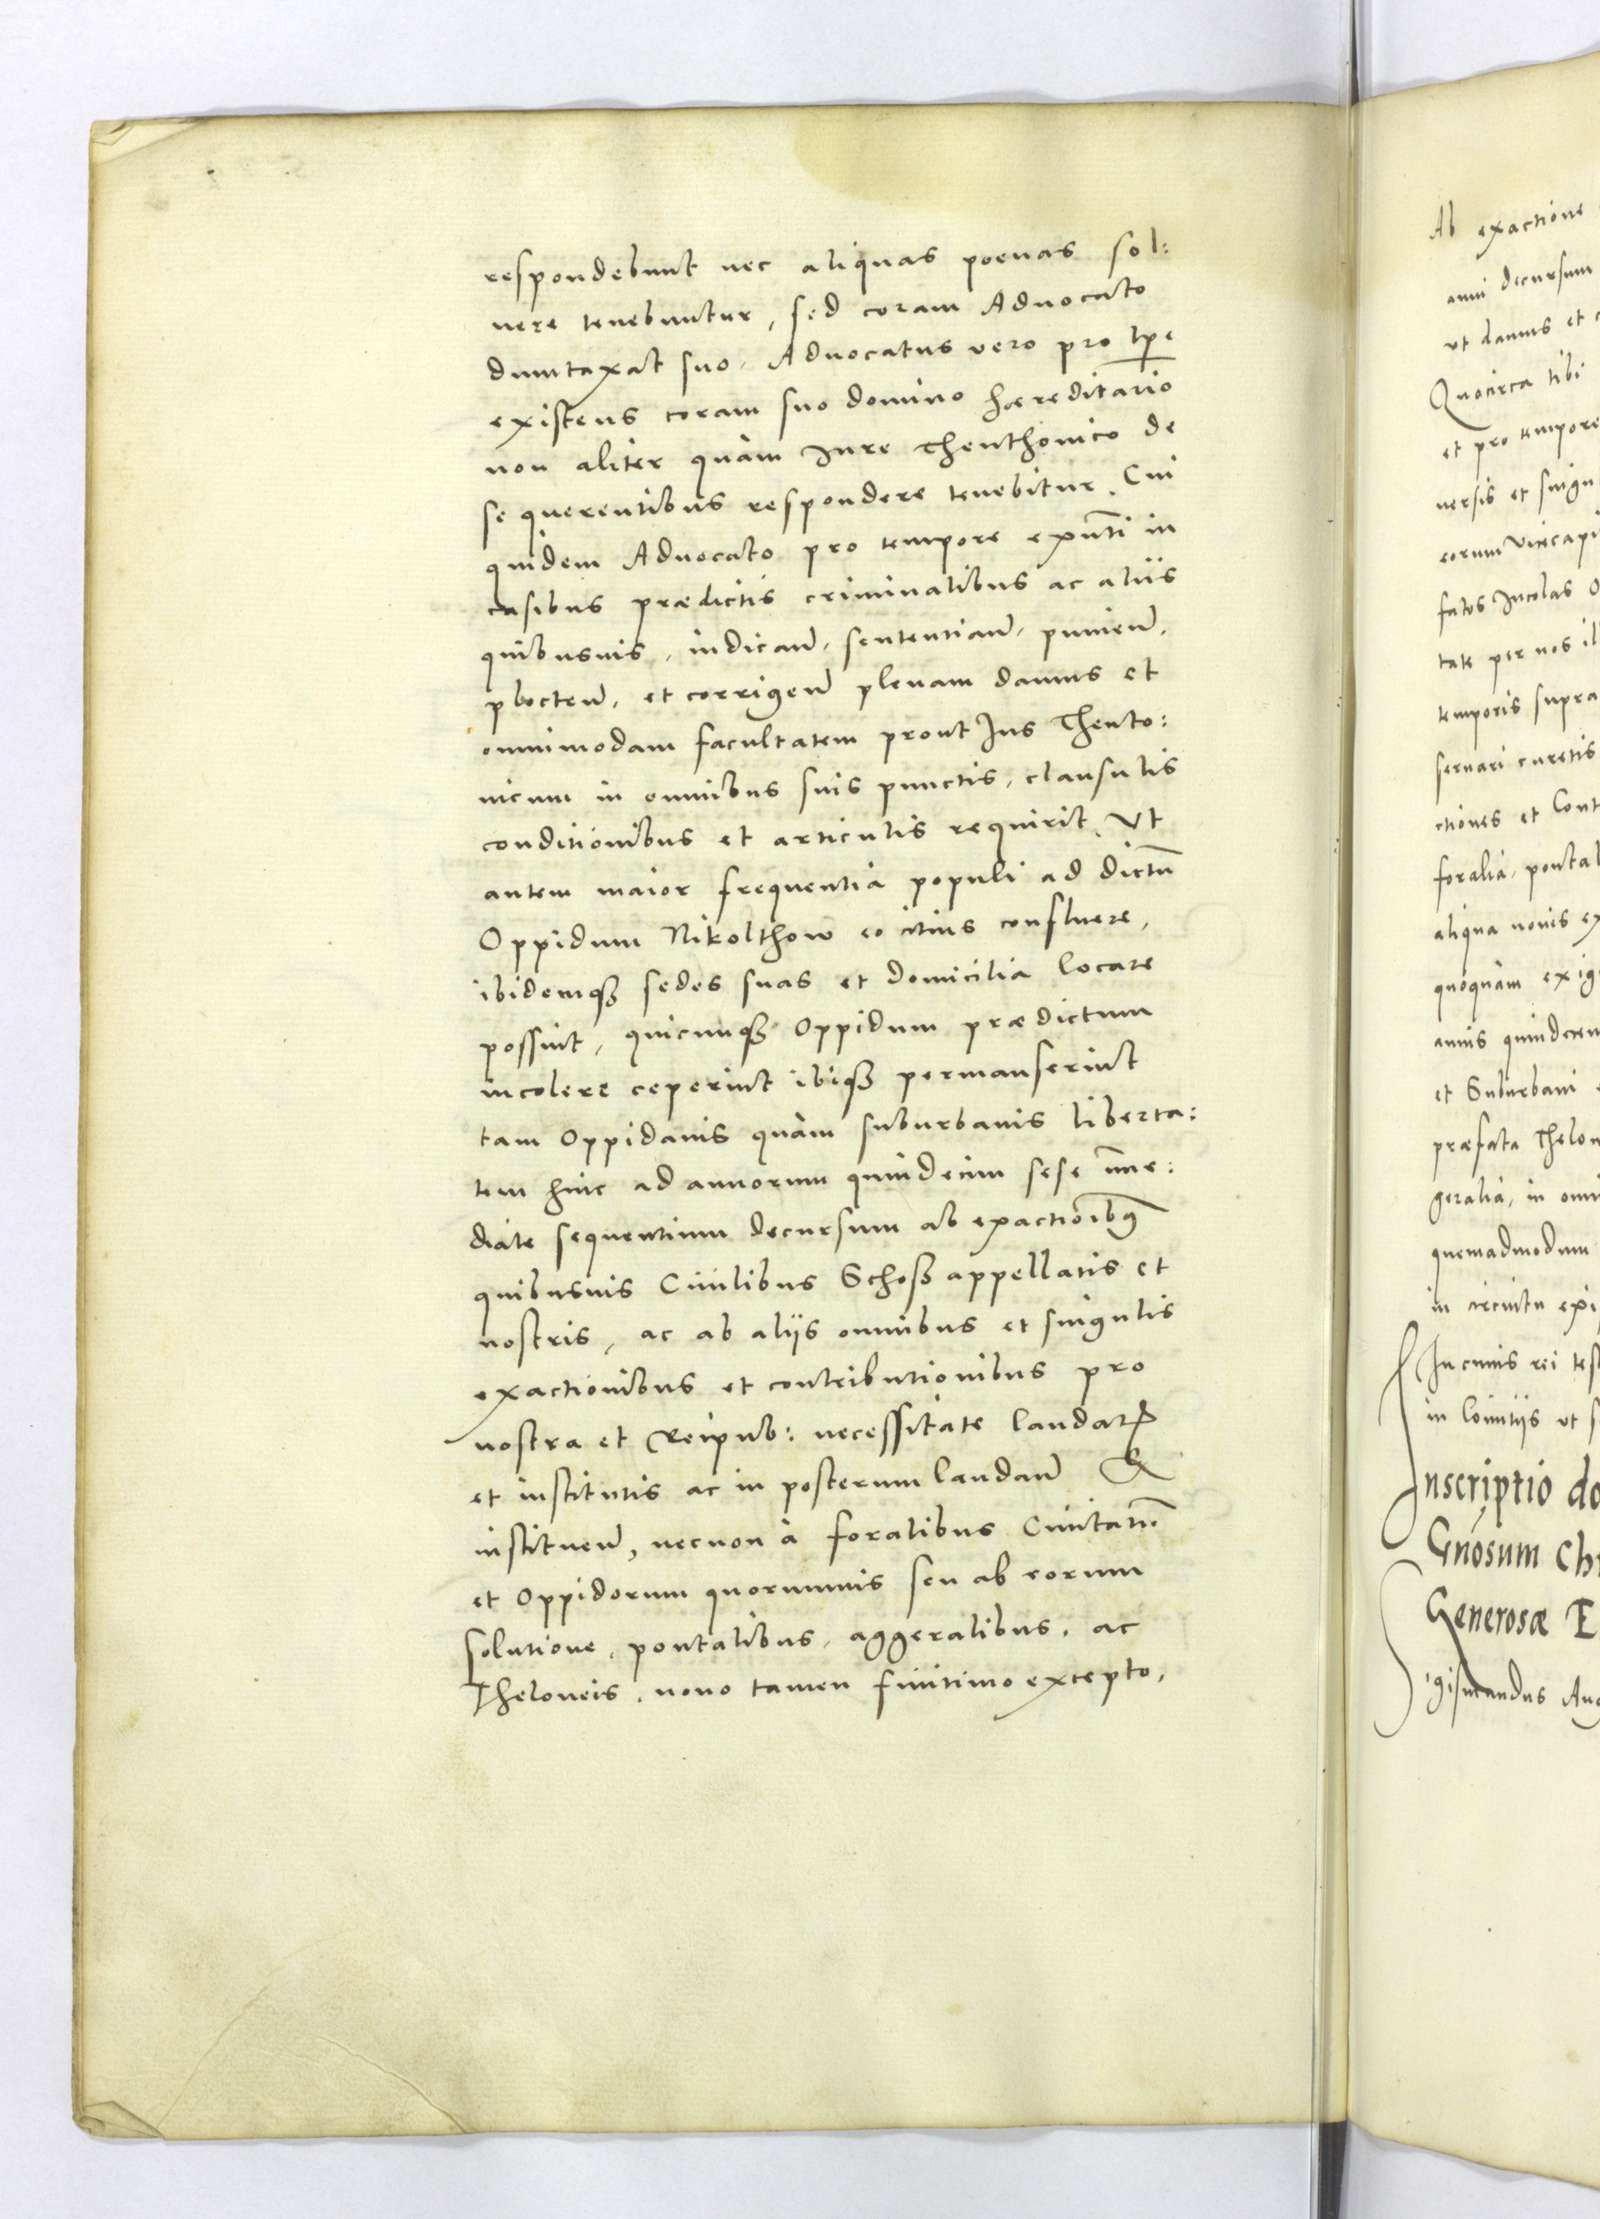 respondebunt nec aliquas poenas sol:
uere tenebuntur, sed coram Aduocato
dumtaxat suo. Aduocatus vero pro tpe
existens coram suo domino haereditario
non aliter quàm Iure Theuthonico de
se querentibus respondere tenebitur. Cui
quidem Aduocato pro tempore exnti in
casibus praedictis criminalibus ac aliis
quibusuis, iudican̄, sententian̄, punien̄,
plecten̄, et corrigen̄ plenam damus et
omnimodam facultatem prout Ius Theuto:
nicum in omnibus suis punctis, clausulis
conditionibus et articulis requirit. Vt
autem maior frequentia populi ad dictū
Oppidum Nikolthow eo citius confluere,
ibidemqȝ sedes suas et domicilia locare
possint, quicunqȝ Oppidum praedictum
incolere ceperint ibiqȝ permanserint
tam Oppidanis quàm suburbanis liberta:
tem hinc ad annorum quindecim sese im̄e:
diate sequentium decursum ab exactioībȝ
quibusuis Ciuilibus Schoß appellatis et
nostris, ac ab aliis omnibus et singulis
exactionibus et contributionibus pro
nostra et Reipub: necessitate laudatꝭ
et institutis ac in posterum laudan̄ &
instituen̄, necnon à foralibus Ciuitatū
et Oppidorum quorumuis seu ab eorum
solutione, pontalibus, aggeralibus, ac
Theloneis, nouo tamen finitimo excepto,
Ab exactione
anni decursum
vt damus et
Quocirca tibi
et pro tempore
uersis et singu
eorum Vicecapi
fatos Incolas O
tate per nos il
temporis supra
seruari curetis
ctiones et Cont
foralia, pontal
aliqua nouis ex
quoquàm exig
annis quindecem
et Suburbani
praefata Thelon
geralia, in omn
quemadmodum
in circuitu exi
In cuius rei tes
in Comitiis vt s
Inscriptio do
Gnosum Chr
Generosae E
Sigismundus Aug